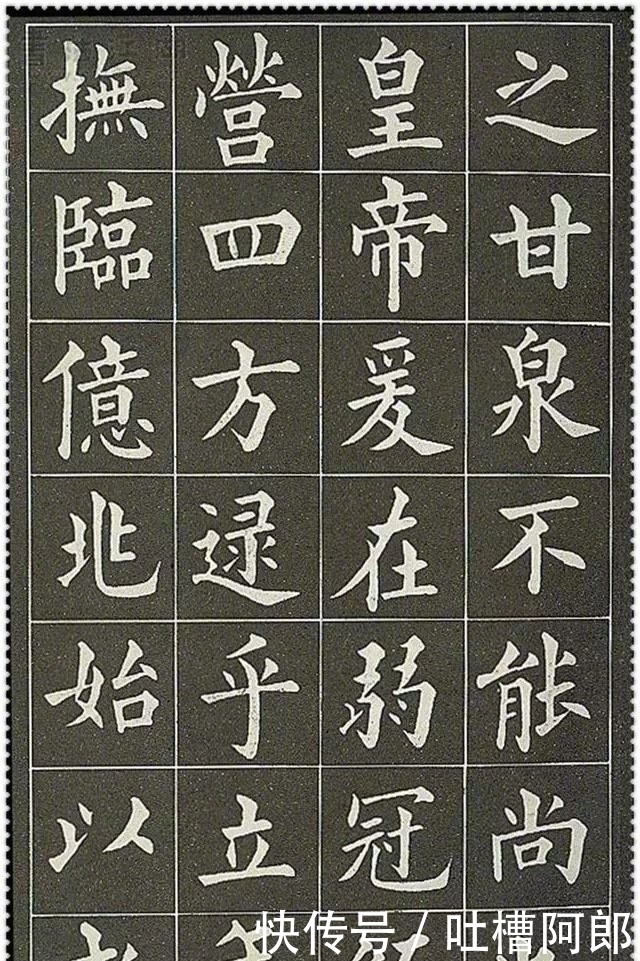 之甘泉不能尚
皇帝爰在弱冠
營四方逯乎立
撫臨億兆始以
快传号/吐槽阿郎